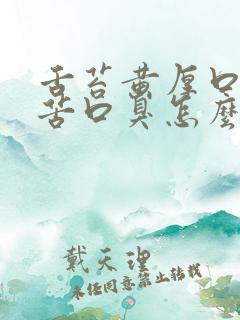 舌苔黄厚口
苦口臭怎么
戴天理
未经同意禁止转载